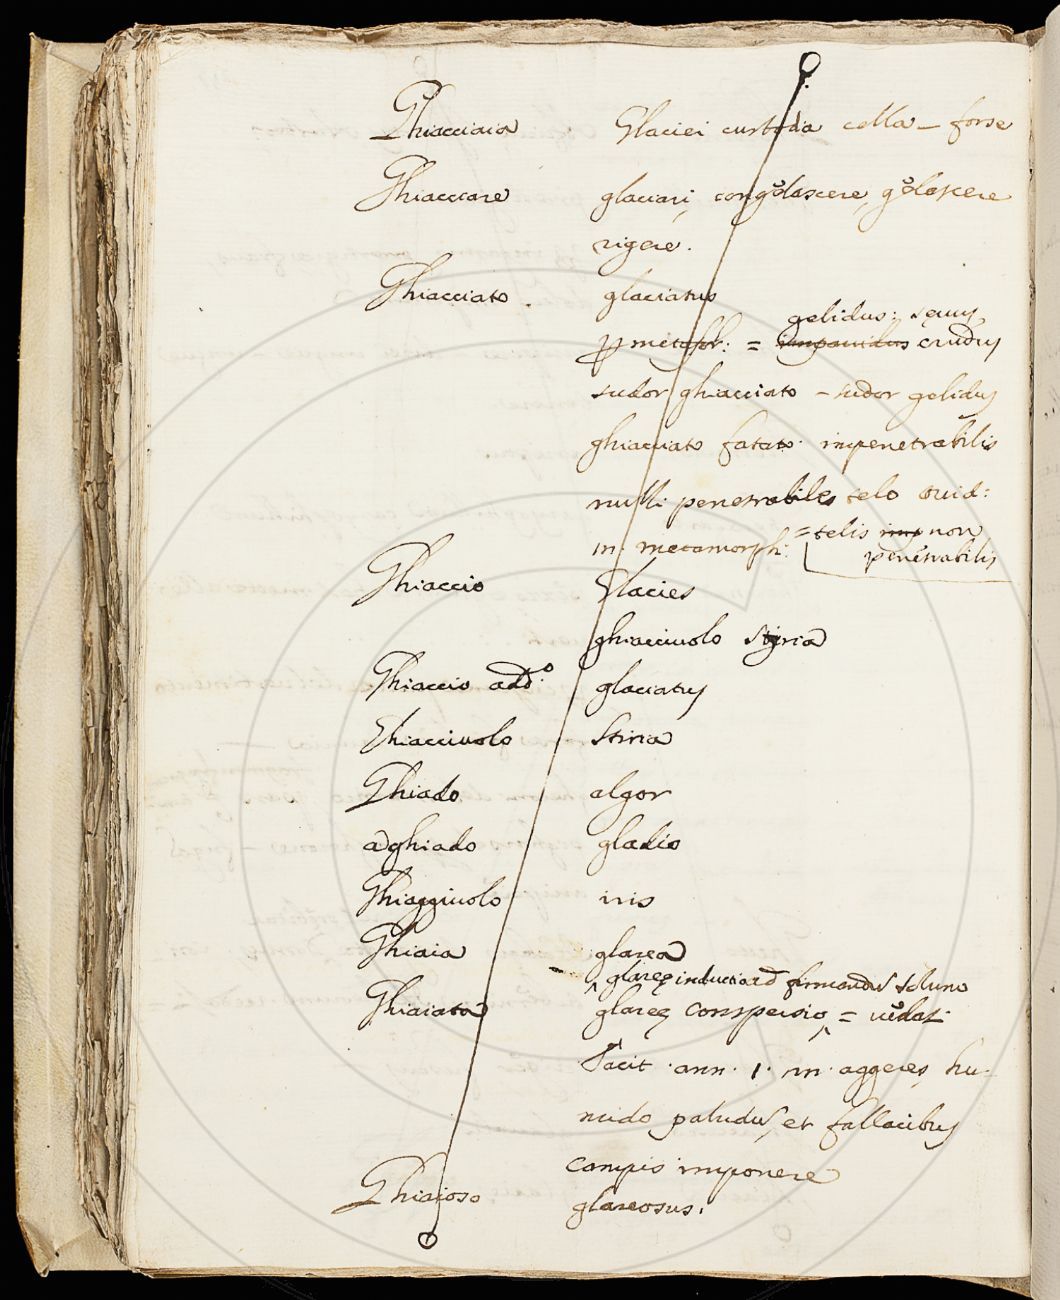 Ghiacciaia Glaciei custodia cella – forse
Ghiacciare glaciari, congelascere, gelascere
rigere.
Ghiacciato. glaciatus
gelidus: sęvus
p metafor: = impavidus crudus
sudor ghiacciato – sudor gelidus
ghiacciato fatato. impenetrabilis
nulli penetrabiles telo ovid:
in metamorph: = telis imp non
penetrabilis
Ghiaccio Glacies
ghiacciuolo styria
Ghiaccio add:º glaciatus
Ghiacciuolo Stiria
Ghiado algor
a ghiado gladio
Ghiaggiuolo iris
Ghiaia glarea
glareę inductio ad firmandum solum
Ghiaiata glareę conspersio =
Tacit. ann. 1. in. aggeres hu-
mido paludum, et fallacibus
campis imponere
Ghiaioso glareosus.